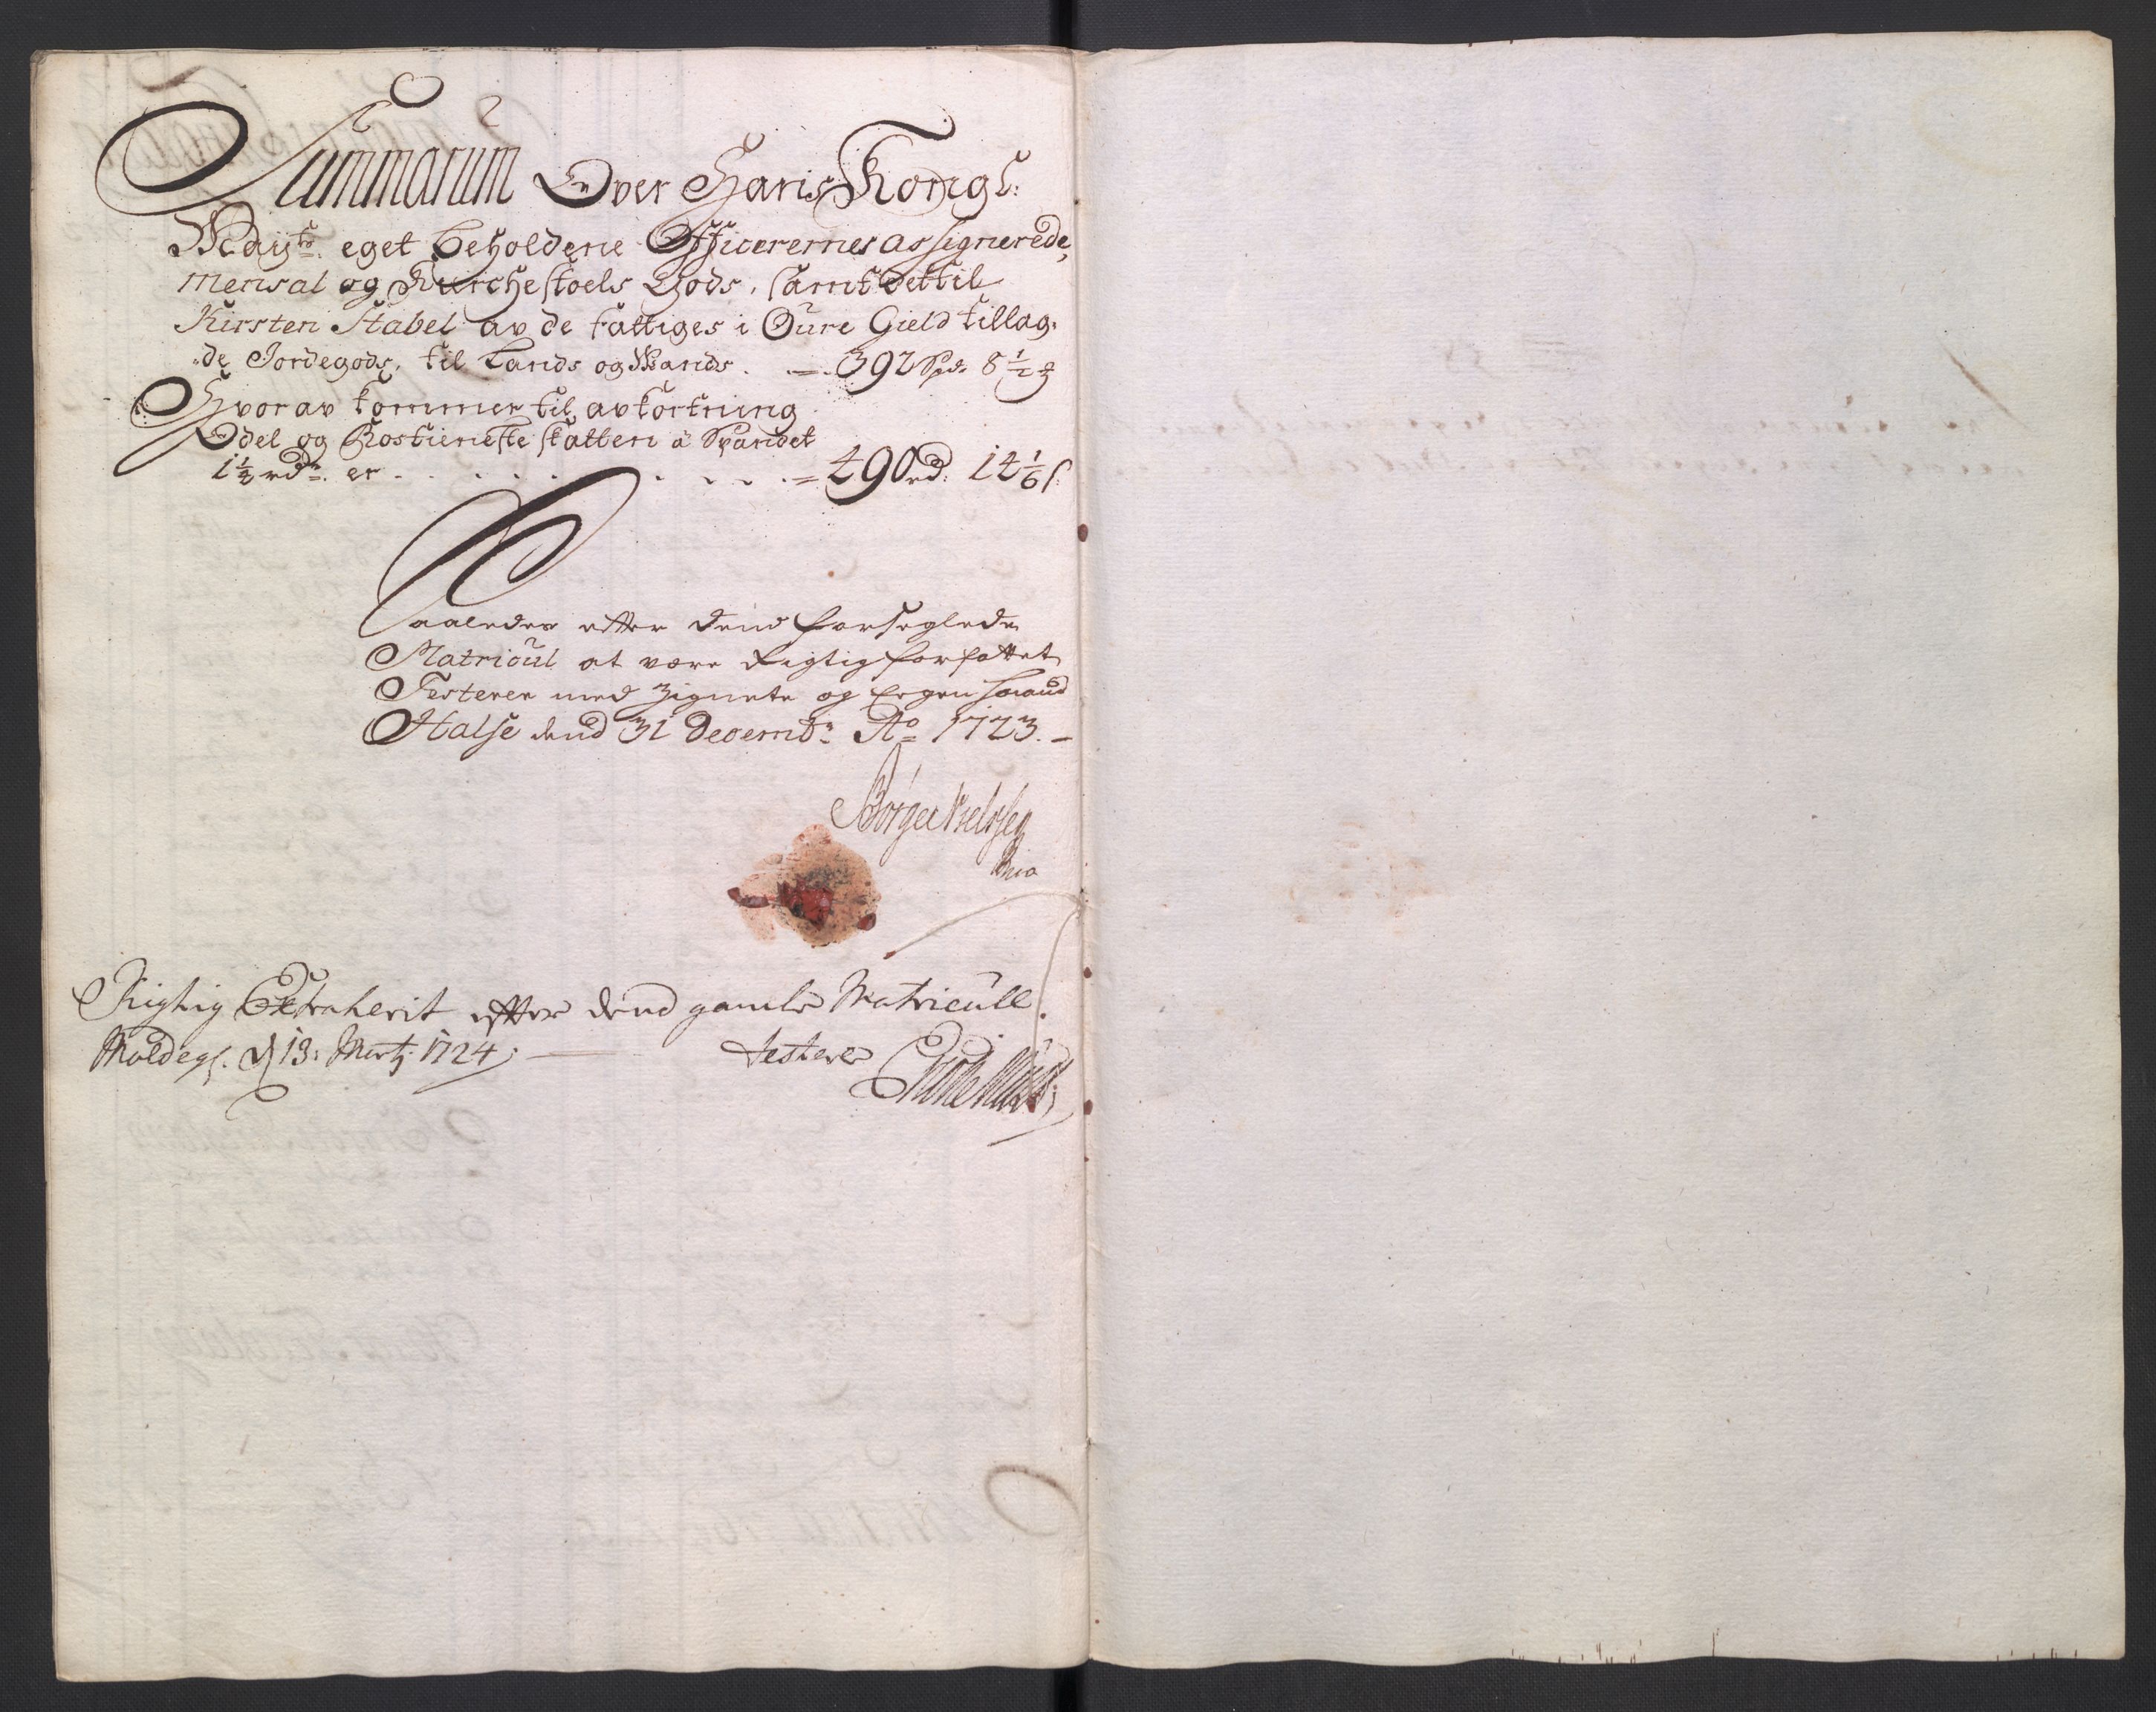 Summarum Over Hans Kongl:
Mayts. eget beholdene Officerernes assignerede,
Mensal og Kirchestoels Gods, samt det til
Kirsten Stabel av de fattiges i Øure Gield tillag-
de Jordegods, til Lands og Wands. — 392 Spd: 8 1/2
Hvorav kommer til avkortning
Odel og Rostieneste skatten à Spandet
1 1/4 rdr. er . . . . . . . . = 490 rd: 14 1/6 s:
Saaledes efter dend forseglede
Matricul at være Rigtig forfattet
Testerer med Zignete og Egen haand
Halse dend 31 Decembr: Ao 1723. —
Børge
Rigtig Extraherit efter dend gamle Matricull.
Moldegr. d 13: Martj 1724; — testerer